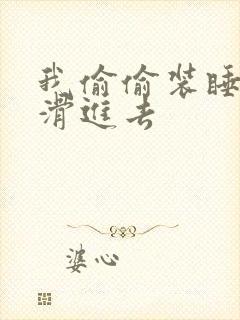 我偷偷装睡
滑進去
婆心